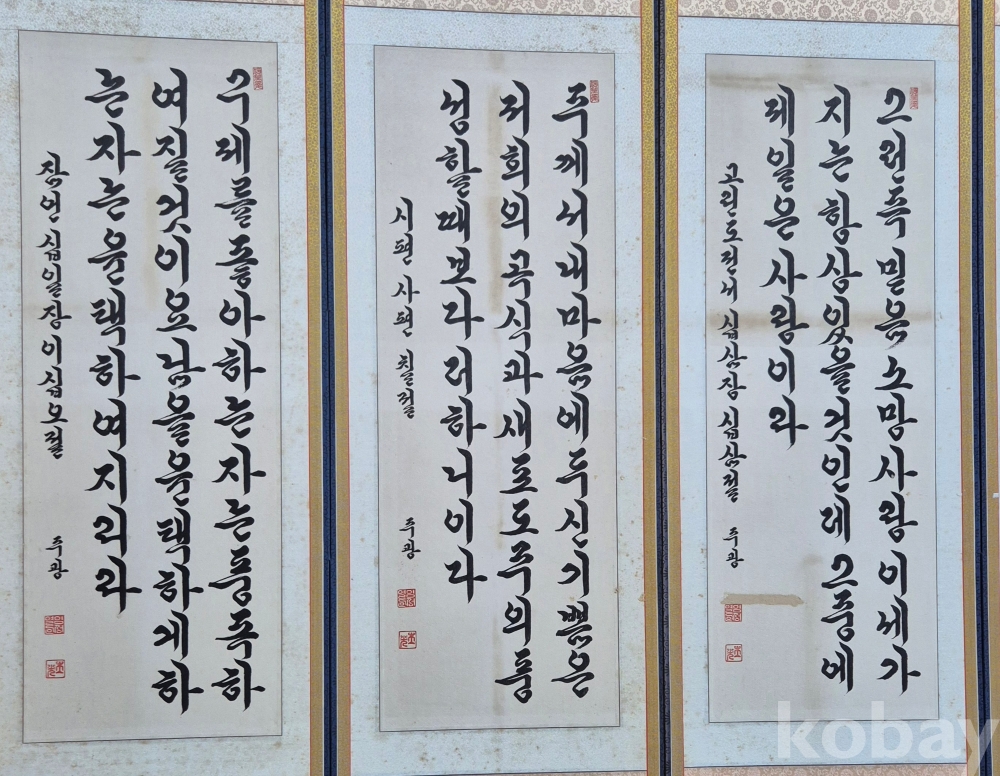 그런즉믿음소망사랑이세가
지는항상있을것인데그중에
제일은사랑이라
고린도전서 십삼장 십삼절 주광
주께서내마음에두신기쁨은
저희의곡식과새포도주의풍
성할때보다더하니이다
시편 사편 칠절 주광
구제를좋아하는자는풍족하
여질것이요남을윤택하게하
는자는윤택하여지리라
잠언십일장이십오절 주광
kobay